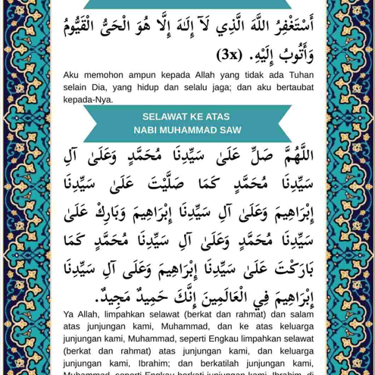 أَسْتَغْفِرُ اللَّهَ الَّذِي لَآ إِلَـٰهَ إِلَّا هُوَ الْحَىُّ الْقَيُّومُ
وَأَتُوبُ إِلَيْهِ. (3x)
Aku memohon ampun kepada Allah yang tidak ada Tuhan
selain Dia, yang hidup dan selalu jaga; dan aku bertaubat
kepada-Nya.
SELAWAT KE ATAS
NABI MUHAMMAD SAW
اللَّهُمَّ صَلِّ عَلَىٰ سَيِّدِنَا مُحَمَّدٍ وَعَلَىٰ آلِ
سَيِّدِنَا مُحَمَّدٍ كَمَا صَلَّيْتَ عَلَىٰ سَيِّدِنَا
إِبْرَاهِيمَ وَعَلَىٰ آلِ سَيِّدِنَا إِبْرَاهِيمَ وَبَارِكْ عَلَىٰ
سَيِّدِنَا مُحَمَّدٍ وَعَلَىٰ آلِ سَيِّدِنَا مُحَمَّدٍ كَمَا
بَارَكْتَ عَلَىٰ سَيِّدِنَا إِبْرَاهِيمَ وَعَلَى آلِ سَيِّدِنَا
إِبْرَاهِيمَ فِي الْعَالَمِينَ إِنَّكَ حَمِيدٌ مَجِيدٌ.
Ya Allah, limpahkan selawat (berkat dan rahmat) dan salam
atas junjungan kami, Muhammad, dan ke atas keluarga
junjungan kami, Muhammad, seperti Engkau limpahkan selawat
(berkat dan rahmat) atas junjungan kami, dan keluarga
junjungan kami, Ibrahim; dan berkatilah junjungan kami,